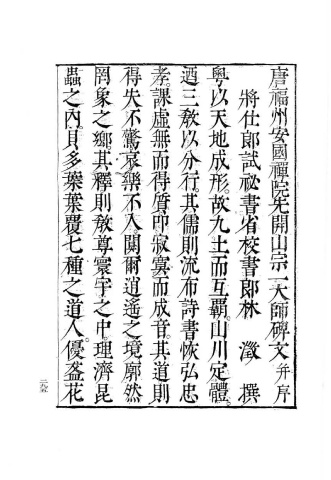 唐福州安國禪院先開山宗一大師碑文并序
將仕郎試祕書省校書郎林　澂　撰
粤以天地成形。故九土而互霸。山川定體。
迺三教以分行。其儒則流布詩書恢弘忠
孝課虛無而得質叩寂寞而成音。其道則
得失不驚。哀樂不入。関爾逍遙之境廓然
罔象之鄉。其釋則教尊寰宇之中。理濟昆
蟲之內。貝多葉葉覆七種之道人。優盋花
二九五